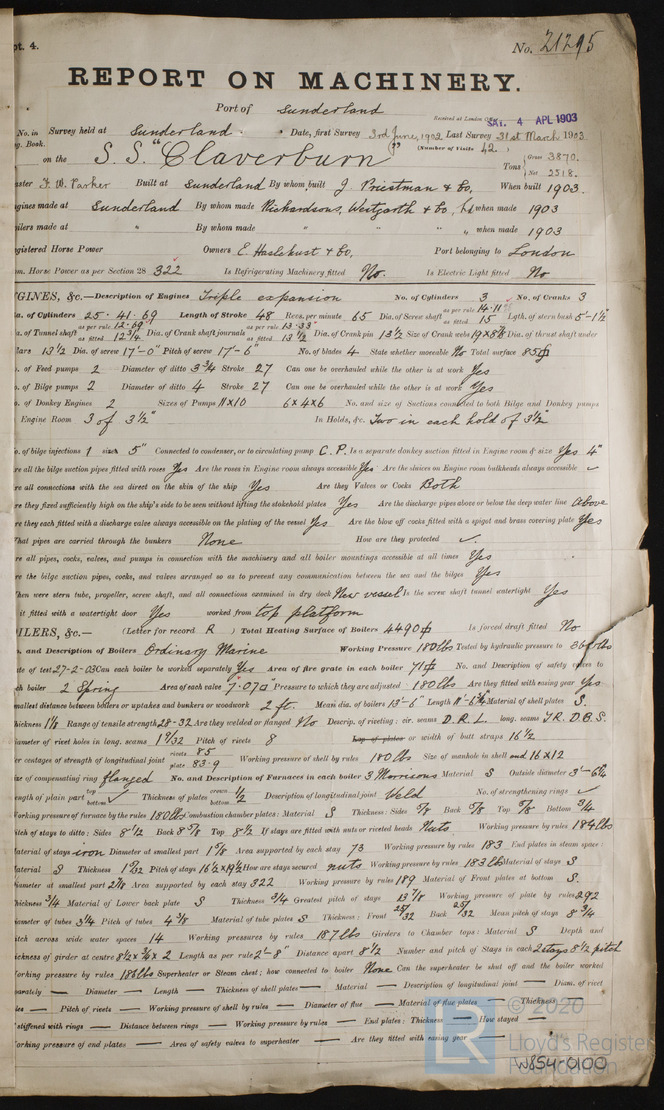 pt. 4.
No. 21295
REPORT ON MACHINERY.
Port of Sunderland
Received at London SAT. 4 APL 1903
No. in Survey held at Sunderland Date, first Survey 3rd June, 1902 Last Survey 31st March 1903
g. Book. (Number of Visits 42.)
on the S.S. "Claverburn" Tons { Gross 3870. Net 2518.
aster F. W. Parker Built at Sunderland By whom built J. Priestman & Co, When built 1903.
gines made at Sunderland By whom made Richardsons, Westgarth & Co, Ld when made 1903
oilers made at " By whom made " " " when made 1903
egistered Horse Power Owners E. Haslehust & Co, Port belonging to London
om. Horse Power as per Section 28 322 Is Refrigerating Machinery fitted No. Is Electric Light fitted No
NGINES, &c.—Description of Engines Triple expansion No. of Cylinders 3 No. of Cranks 3
ia. of Cylinders 25 . 41 . 69 Length of Stroke 48 Revs. per minute 65 Dia. of Screw shaft as per rule 14.11 as fitted 15 Lgth. of stern bush 5'-1½"
a. of Tunnel shaft as per rule 12.69 as fitted 12¾ Dia. of Crank shaft journals as per rule 13.33 as fitted 13½ Dia. of Crank pin 13½ Size of Crank webs Dia. of thrust shaft under
llars 13½ Dia. of screw 17'-0" Pitch of screw 17'-6" No. of blades 4 State whether moveable No Total surface 85
o. of Feed pumps 2 Diameter of ditto 3¾ Stroke 27 Can one be overhauled while the other is at work Yes
o. of Bilge pumps 2 Diameter of ditto 4 Stroke 27 Can one be overhauled while the other is at work Yes
o. of Donkey Engines 2 Sizes of Pumps 11x10 6x4x6 No. and size of Suctions connected to both Bilge and Donkey pumps
Engine Room 3 of 3½" In Holds, &c. Two in each hold of 3½"
o. of bilge injections 1 sizes 5" Connected to condenser, or to circulating pump C.P. Is a separate donkey suction fitted in Engine room & size Yes 4"
re all the bilge suction pipes fitted with roses Yes Are the roses in Engine room always accessible Yes Are the sluices on Engine room bulkheads always accessible ✓
re all connections with the sea direct on the skin of the ship Yes Are they Valves or Cocks Both
re they fixed sufficiently high on the ship's side to be seen without lifting the stokehold plates Yes Are the discharge pipes above or below the deep water line above
re they each fitted with a discharge valve always accessible on the plating of the vessel Yes Are the blow off cocks fitted with a spigot and brass covering plate Yes
hat pipes are carried through the bunkers None How are they protected ✓
re all pipes, cocks, valves, and pumps in connection with the machinery and all boiler mountings accessible at all times Yes
re the bilge suction pipes, cocks, and valves arranged so as to prevent any communication between the sea and the bilges Yes
hen were stern tube, propeller, screw shaft, and all connections examined in dry dock New vessel Is the screw shaft tunnel watertight Yes
it fitted with a watertight door Yes worked from top platform
OILERS, &c.— (Letter for record R ) Total Heating Surface of Boilers 4490 Is forced draft fitted No
o. and Description of Boilers Ordinary Marine Working Pressure 180 lbs Tested by hydraulic pressure to 360 lbs
ate of test 27-2-03 Can each boiler be worked separately Yes Area of fire grate in each boiler 71 No. and Description of safety valves to
ch boiler 2 Spring Area of each valve 7.07 Pressure to which they are adjusted 180 lbs Are they fitted with easing gear Yes
mallest distance between boilers or uptakes and bunkers or woodwork 2 ft. Mean dia. of boilers 13'-6" Length Material of shell plates S.
hickness 1⅛ Range of tensile strength 28-32 Are they welded or flanged No Descrip. of riveting: cir. seams D.R.L. long. seams TR.D.B.S.
iameter of rivet holes in long. seams 1 9/32 Pitch of rivets 8 Lap of plates or width of butt straps 16½
er centages of strength of longitudinal joint rivets 85 plate 83.9 Working pressure of shell by rules 180 lbs Size of manhole in shell end 16x12
ize of compensating ring flanged No. and Description of Furnaces in each boiler 3 Morrisons Material S Outside diameter
ength of plain part top ✓ bottom Thickness of plates crown ½ bottom Description of longitudinal joint Weld No. of strengthening rings ✓
orking pressure of furnace by the rules 180 lbs Combustion chamber plates: Material S Thickness: Sides ⅝ Back ⅝ Top ⅝ Bottom ¾
itch of stays to ditto: Sides 8½ Back 8⅝ Top 8½ If stays are fitted with nuts or riveted heads Nuts Working pressure by rules 184 lbs
aterial of stays iron Diameter at smallest part 1⅝ Area supported by each stay 73 Working pressure by rules 183 End plates in steam space:
aterial S Thickness 1 7/32 Pitch of stays 16½x19½ How are stays secured nuts Working pressure by rules 183 lbs Material of stays S
iameter at smallest part 2⅞ Area supported by each stay 322 Working pressure by rules 189 Material of Front plates at bottom S
hickness ¾ Material of Lower back plate S Thickness ¾ Greatest pitch of stays 13⅞ Working pressure of plate by rules 292
iameter of tubes 3¼ Pitch of tubes 4⅜ Material of tube plates S Thickness: Front 25/32 Back 25/32 Mean pitch of stays 8¾
itch across wide water spaces 14 Working pressures by rules 187 lbs Girders to Chamber tops: Material S Depth and
ickness of girder at centre 8½x¾x2 Length as per rule 2'-8" Distance apart 8½ Number and pitch of Stays in each 2 stays 8½ pitch
orking pressure by rules 186 lbs Superheater or Steam chest; how connected to boiler None Can the superheater be shut off and the boiler worked
parately — Diameter — Length — Thickness of shell plates — Material — Description of longitudinal joint — Diam. of rivet
les — Pitch of rivets — Working pressure of shell by rules — Diameter of flue — Material of flue plates — Thickness
stiffened with rings — Distance between rings — Working pressure by rules — End plates: Thickness — How stayed —
orking pressure of end plates — Area of safety valves to superheater — Are they fitted with easing gear —
© 2020
Lloyd's Register
Foundation
W854-0100